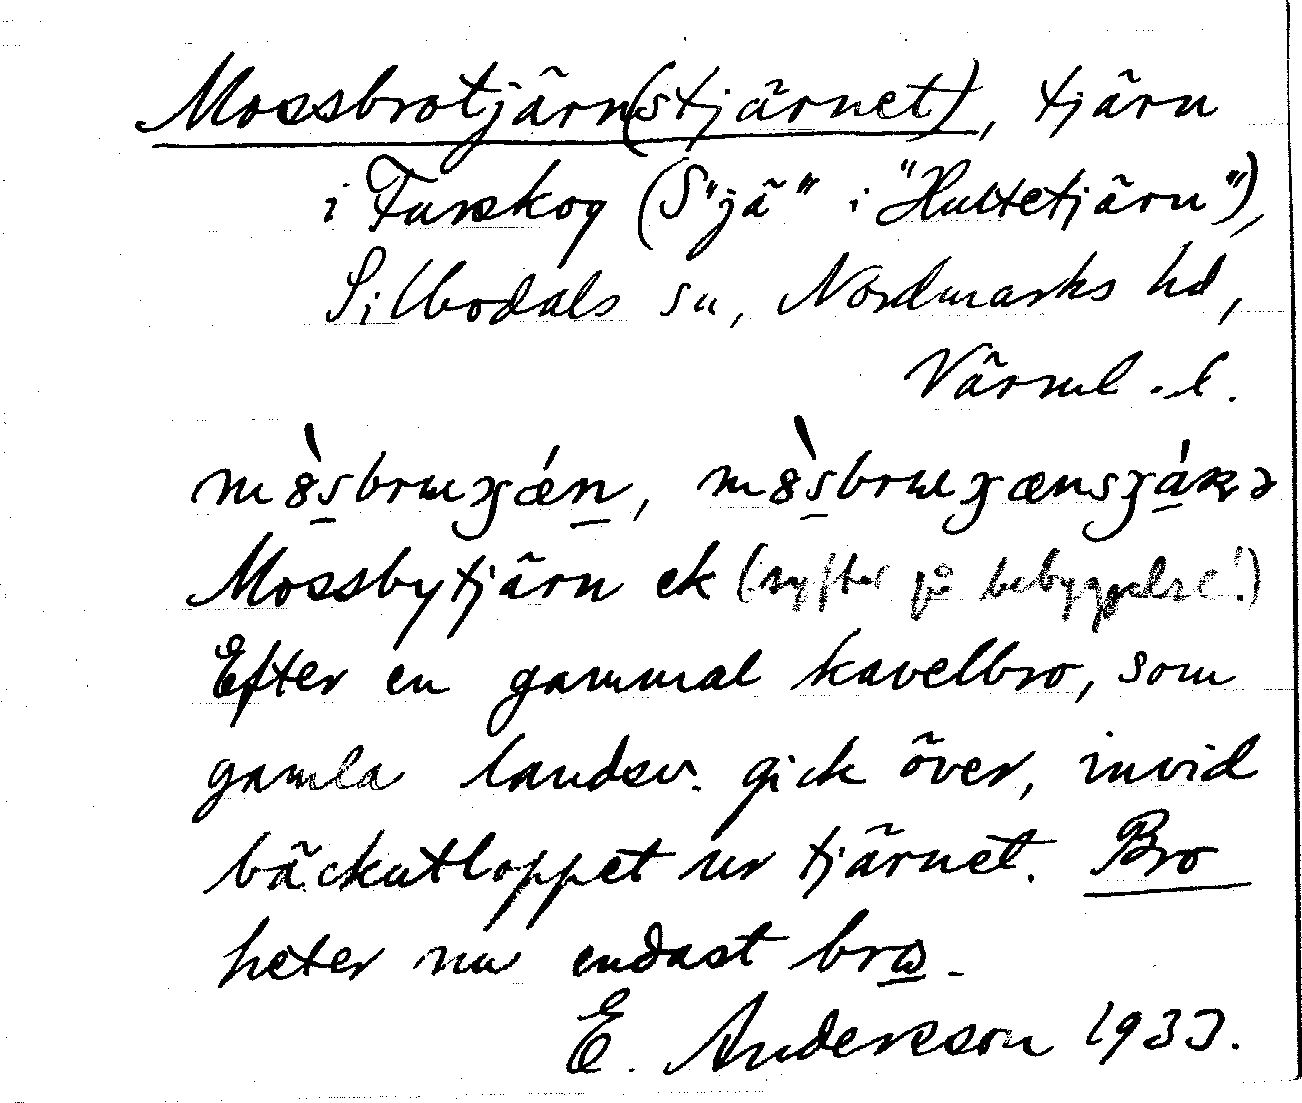 Mossbrotjärn(stjärnet), tjärn
i Furskog (S "jä" i "Hultetjärn"),
Silbodals sn, Nordmarks hd,
Värml. l.
Mossbytjärn ek (syftar på bebyggelse!)
Efter en gammal kavelbro, som
gamla landsv. gick över, invid
bäckutloppet ur tjärnet. Bro
heter nu endast
E. Andersson 1933.